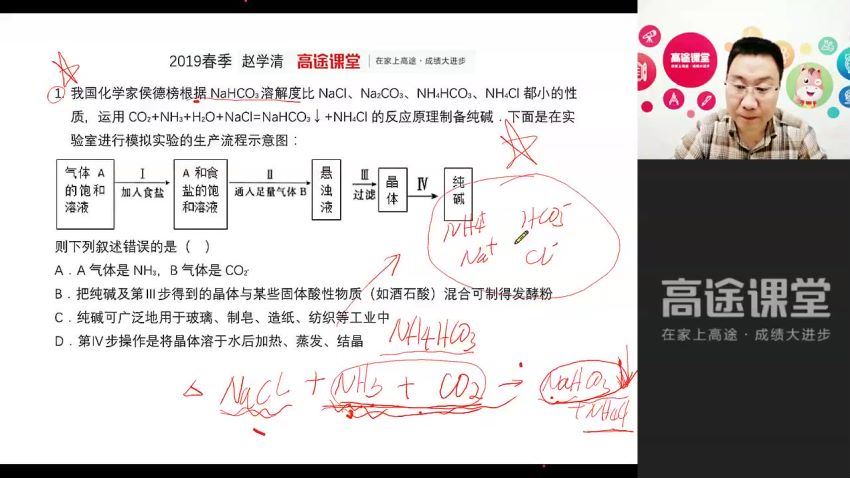 2019春季 赵学清 高途课堂 在家上高途·成绩大进步
① 我国化学家侯德榜根据 NaHCO₃溶解度比 NaCl、Na₂CO₃、NH₄HCO₃、NH₄Cl 都小的性
质，运用 CO₂+NH₃+H₂O+NaCl=NaHCO₃↓+NH₄Cl 的反应原理制备纯碱．下面是在实
验室进行模拟实验的生产流程示意图：
气体 A 的饱和溶液
Ⅰ 加入食盐
A 和食盐的饱和溶液
Ⅱ 通入足量气体 B
悬浊液
Ⅲ 过滤
晶体
Ⅳ
纯碱
NH₄⁺ HCO₃⁻
Na⁺ Cl⁻
则下列叙述错误的是（ ）
A．A 气体是 NH₃，B 气体是 CO₂
B．把纯碱及第Ⅲ步得到的晶体与某些固体酸性物质（如酒石酸）混合可制得发酵粉
C．纯碱可广泛地用于玻璃、制皂、造纸、纺织等工业中
D．第Ⅳ步操作是将晶体溶于水后加热、蒸发、结晶
NH4HCO3
△ NaCl + NH3 + CO2 → NaHCO3↓
+ NH4Cl
高途课堂
高途课堂
在家上高途·成绩大进步